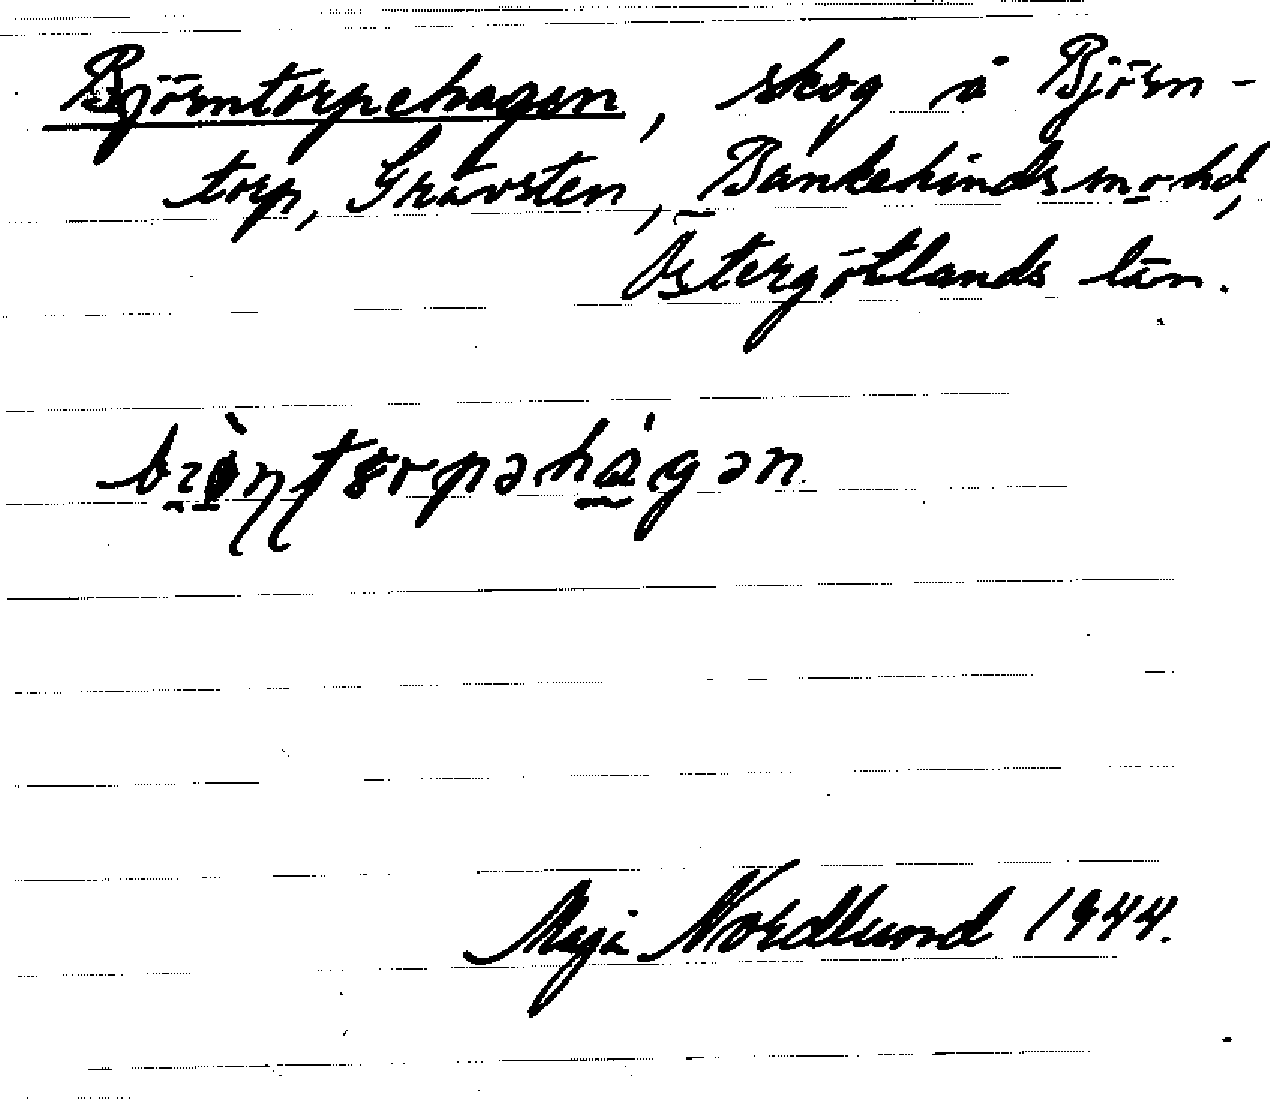 Björntorpehagen, skog å Björn-
torp, Gråvsten, Bankekinds m. o. hd,
Östergötlands län.
Maja Nordlund 1944.